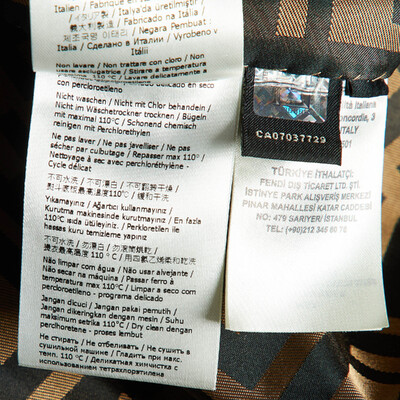 Italien / Fabricado en Italia
/ イタリア製 / Italya'da üretilmiştir /
義大利製造 / Fabricado na Itália /
제조국명 이태리 / Negara Pembuat :
Italia / Сделано в Италии / Vyrobeno v
Itálii
Non lavare / Non trattare con cloro / Non
usare asciugatrice / Stirare a temperatura
110°C / Lavare delicatamente a
delicado en seco
con percloroetileno
Nicht waschen / Nicht mit Chlor behandeln /
Nicht im Wäschetrockner trocknen / Bügeln
mit maximal 110°C / Schonend chemisch
reinigen mit Perchlorethylen
Ne pas laver / Ne pas javelliser / Ne pas
sécher par culbutage / Repasser max 110° /
Nettoyage à sec avec perchloréthylène -
Cycle délicat
不可水洗 / 不可漂白 / 不可翻转干燥 /
110°C / 缓和干洗
Yıkamayınız / Ağartıcı kullanmayınız /
Kurutma makinesinde kurutmayınız / En fazla
110°C ısıda ütüleyiniz. / Perkloretilen ile
hassas kuru temizleme yapınız
不可水洗 / 勿漂白 / 勿滾筒烘乾 /
熨衣最高溫度 110°C / 用四氯乙烯柔和乾洗
Não limpar com água / Não usar alvejante /
Não secar na máquina / Passar ferro à
temperatura max 110°C / Limpar a seco com
percloroetileno - programa delicado
Jangan dicuci / Jangan pakai pemutih /
Jangan dikeringkan dengan mesin / Suhu
maksimum setrika 110°C / Dry clean dengan
perchloretene - proses lembut
Не стирать / Не отбеливать / Не сушить в
сушильной машине / Гладить при макс.
темп. 110°C / Деликатная химчистка с
использованием тетрахлорэтилена
CA07037729
ità Italiana
oncordia, 3
ITALY
TÜRKİYE İTHALATÇI:
FENDI DIŞ TİCARET LTD. ŞTİ.
İSTİNYE PARK ALIŞVERİŞ MERKEZİ
PINAR MAHALLESİ KATAR CADDESİ
NO: 479 SARIYER/ İSTANBUL
TEL: (+90)212 345 60 78